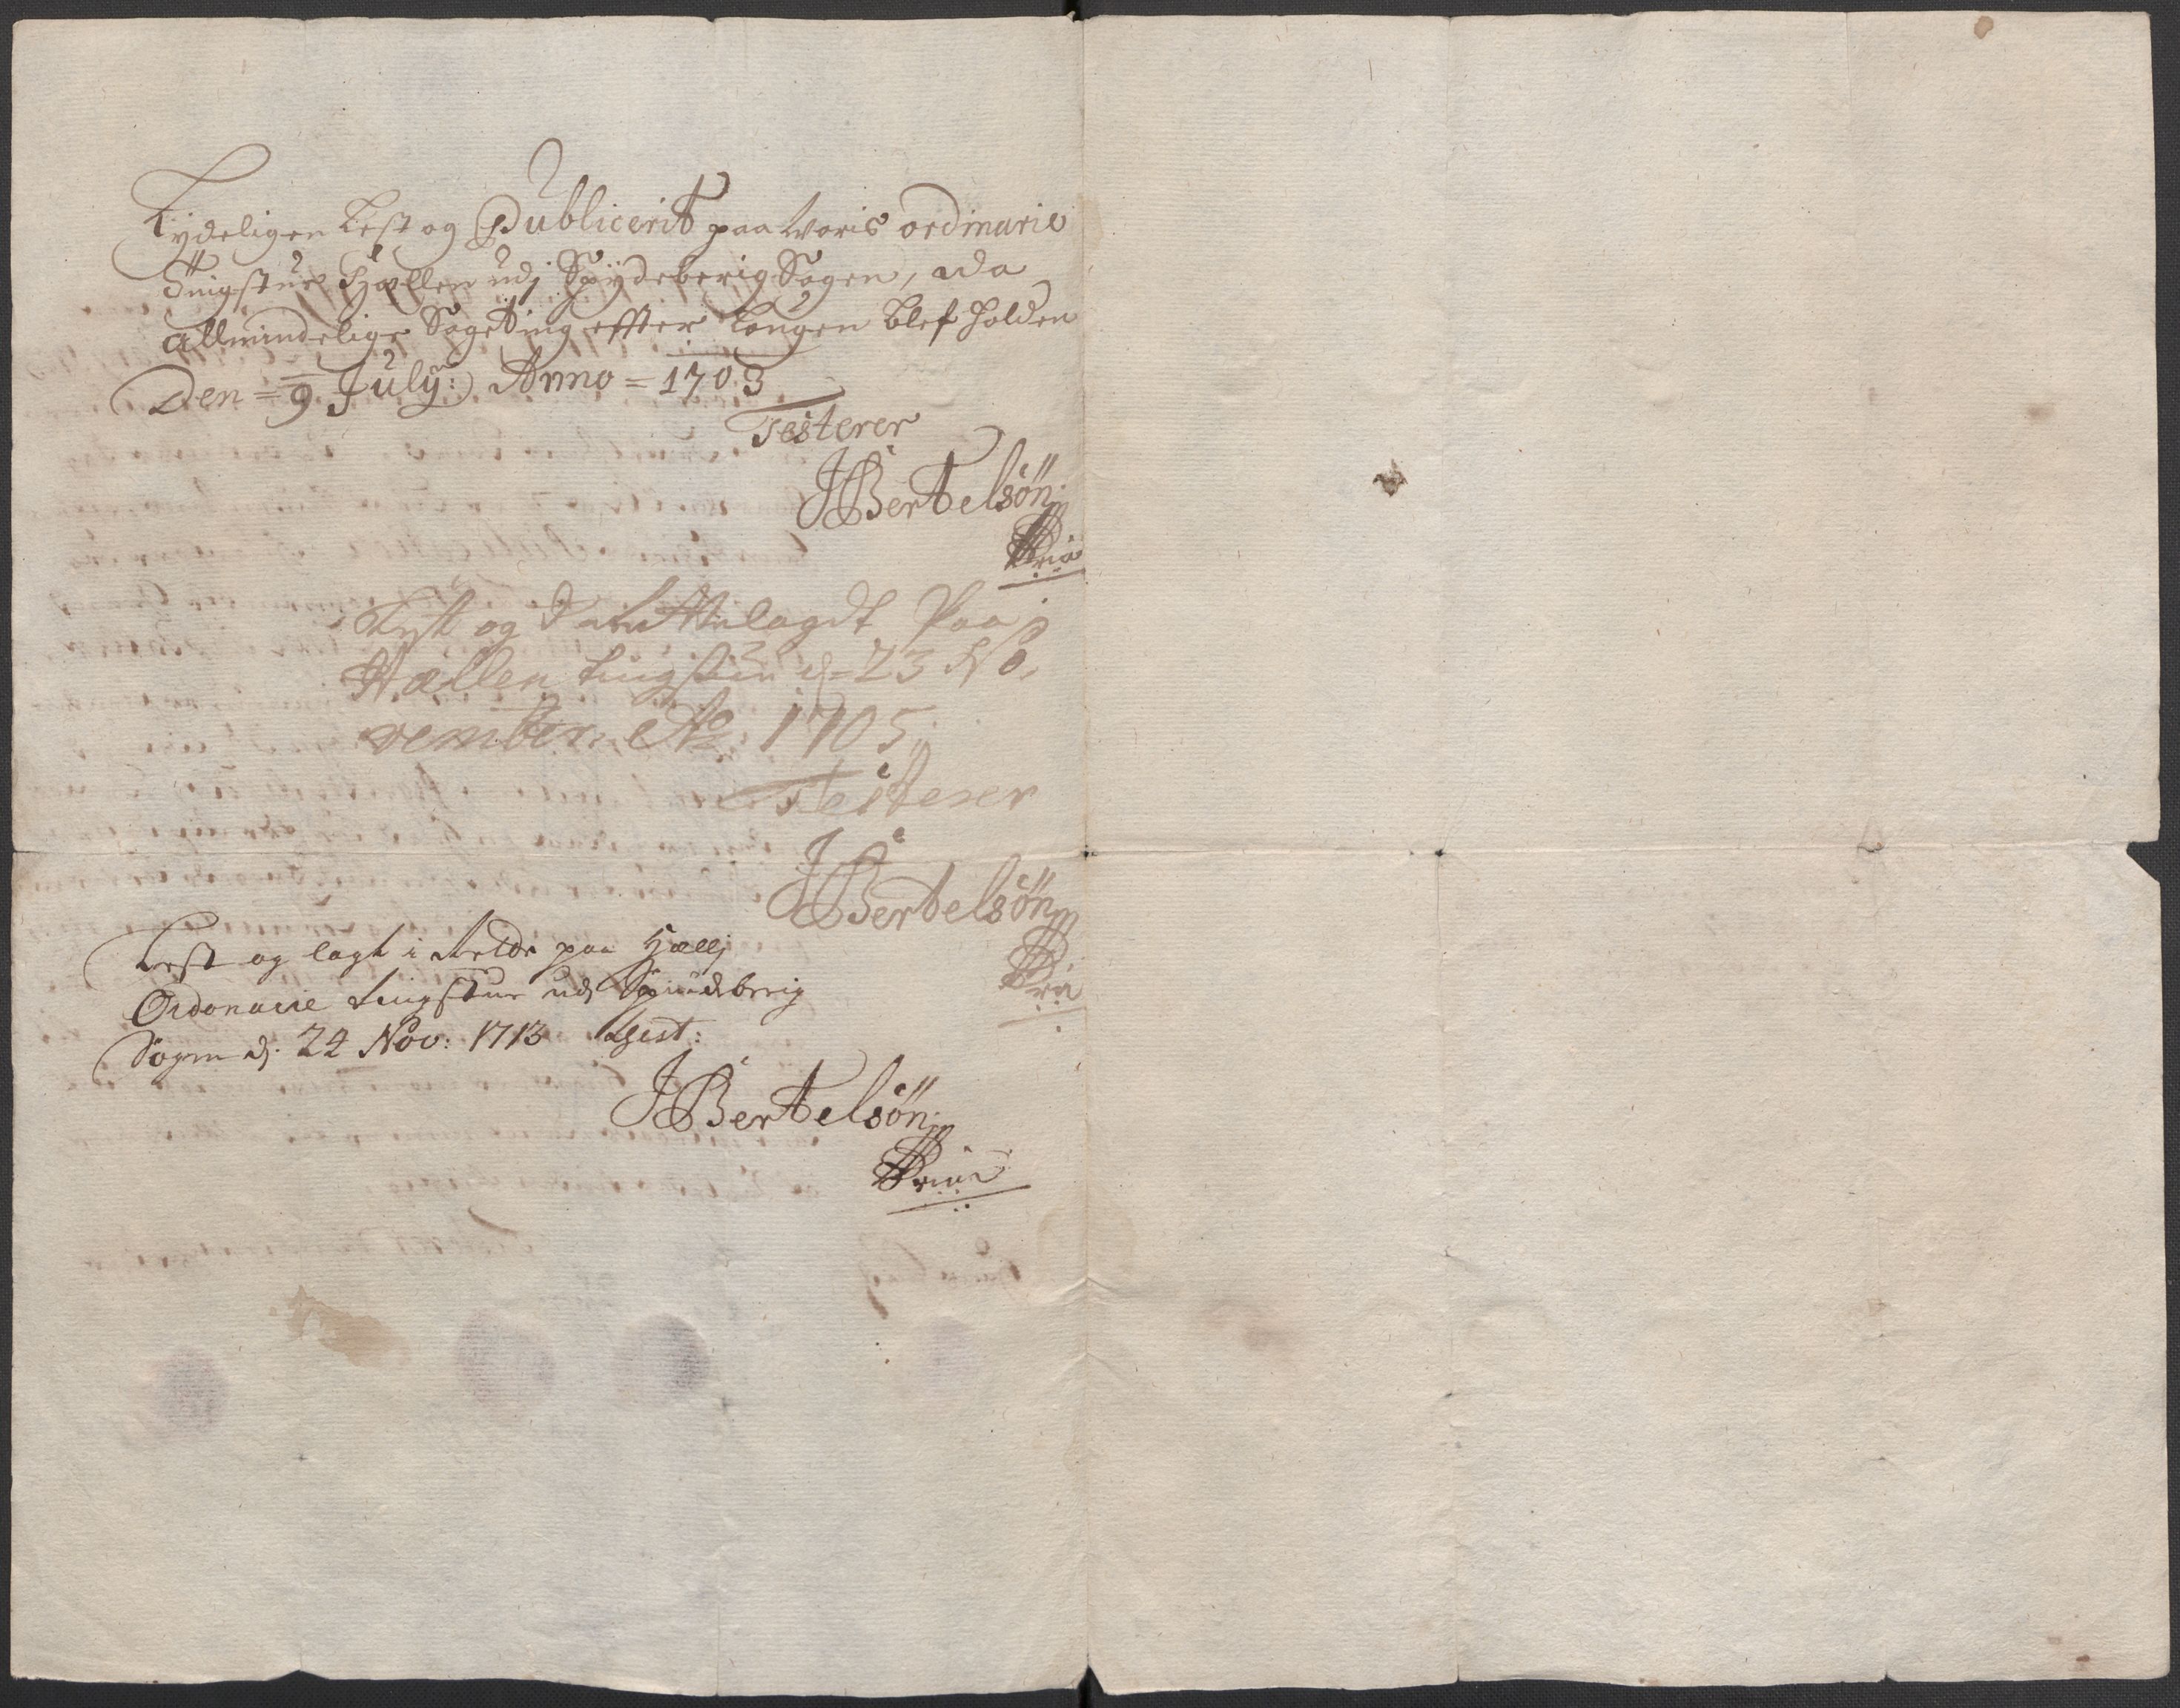 Tydeligen Lest og Publicerit paa woris ordinarie
Tingstue Hællen udj Spydeberig Sogen, ada
allmindelige Sageting effter Laugen blef holden
Den = 9 July: Anno = 1703
Testerer
JBertelsøn
Lyst og i Rette lagdt Paa
Hællen tingstue d= 23 No,
vember Ao 1705
Testerer
JBertelsøn
Lest og lagt i Rette paa Hællj
Ordonarie tingstue udj Spudeberig
Sogen d. 24 Nov: 1713 Test:
JBertelsøn